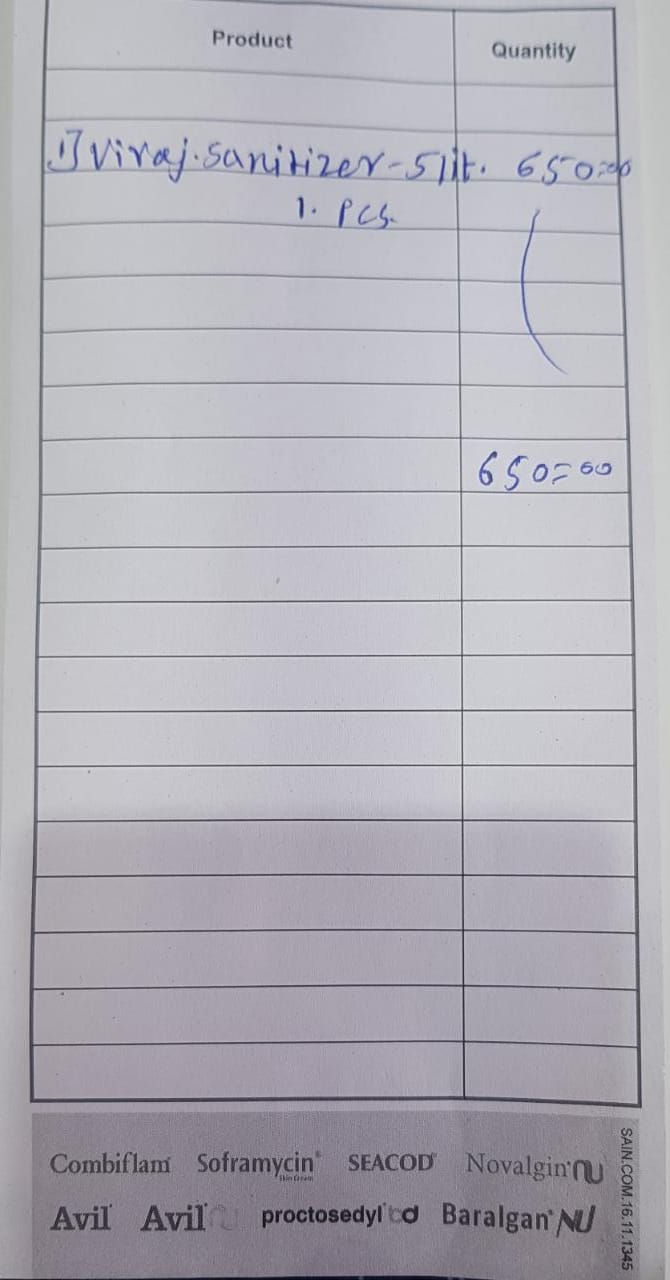 Product Quantity
1] Viraj. Sanitizer - 5 lit. 650=00
1. Pcs.
650=00
Combiflam Soframycin SEACOD Novalgin NU
Skin Cream
Avil Avil proctosedyl bd Baralgan NU
SAIN.COM.16.11.1345